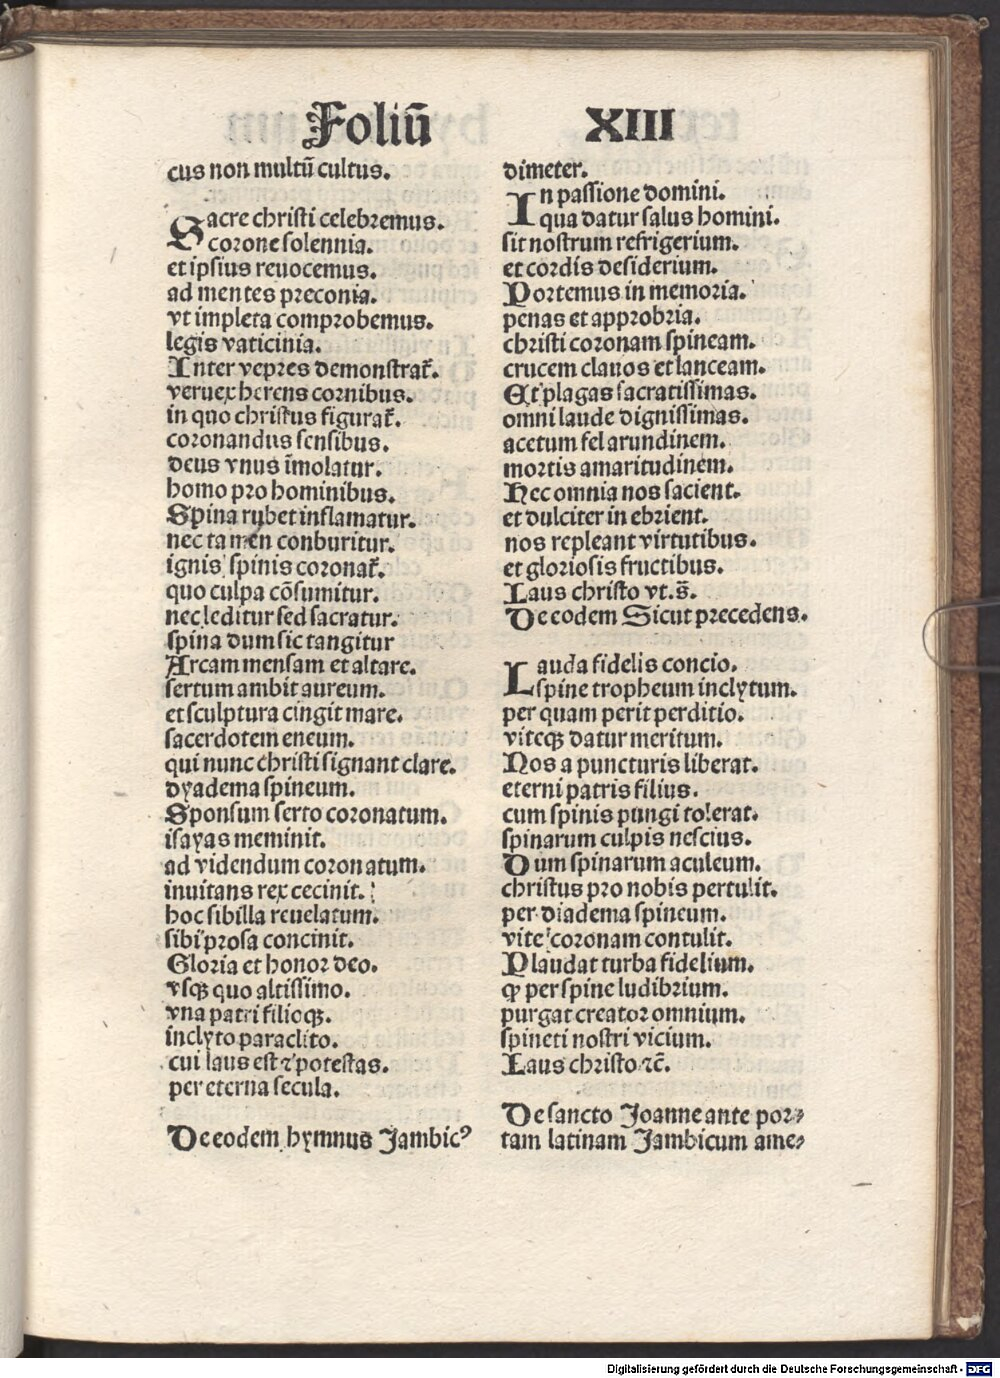 Foliū XIII
cus non multū cultus.
Sacre christi celebremus.
corone solennia.
et ipsius reuocemus.
ad men tes preconia.
vt impleta comprobemus.
legis vaticinia.
Inter vepres demonstrat̄.
veruex herens cornibus.
in quo christus figurat̄.
coronandus sensibus.
deus vnus īmolatur.
homo pro hominibus.
Spina rubet inflamatur.
nec ta men conburitur.
ignis spinis coronat̄.
quo culpa cōsumitur.
nec leditur sed sacratur.
spina dum sic tangitur
Arcam mensam et altare.
sertum ambit aureum.
et sculptura cingit mare.
sacerdotem eneum.
qui nunc christi signant clare.
dyadema spineum.
Sponsum serto coronatum.
isayas meminit.
ad videndum coronatum.
inuitans rex cecinit.
hoc sibilla reuelatum.
sibi prosa concinit.
Gloria et honor deo.
vsqꝫ quo altissimo.
vna patri filioqꝫ.
inclyto paraclito.
cui laus est ⁊ potestas.
per eterna secula.
De eodem hymnus Jambicꝰ
dimeter.
In passione domini.
qua datur salus homini.
sit nostrum refrigerium.
et cordis desiderium.
Portemus in memoria.
penas et approbria.
christi coronam spineam.
crucem clauos et lanceam.
Et plagas sacratissimas.
omni laude dignissimas.
acetum fel arundinem.
mortis amaritudinem.
Hec omnia nos sacient.
et dulciter in ebrient.
nos repleant virtutibus.
et gloriosis fructibus.
Laus christo vt. s̄.
De eodem Sicut precedens.
Lauda fidelis concio.
spine tropheum inclytum.
per quam perit perditio.
viteqꝫ datur meritum.
Nos a puncturis liberat.
eterni patris filius.
cum spinis pungi tolerat.
spinarum culpis nescius.
Dum spinarum aculeum.
christus pro nobis pertulit.
per diadema spineum.
vite coronam contulit.
Plaudat turba fidelium.
ꝙ per spine ludibrium.
purgat creator omnium.
spineti nostri vicium.
Laus christo ⁊c̄.
De sancto Joanne ante por⸗
tam latinam Jambicum ame⸗
Digitalisierung gefördert durch die Deutsche Forschungsgemeinschaft - DFG